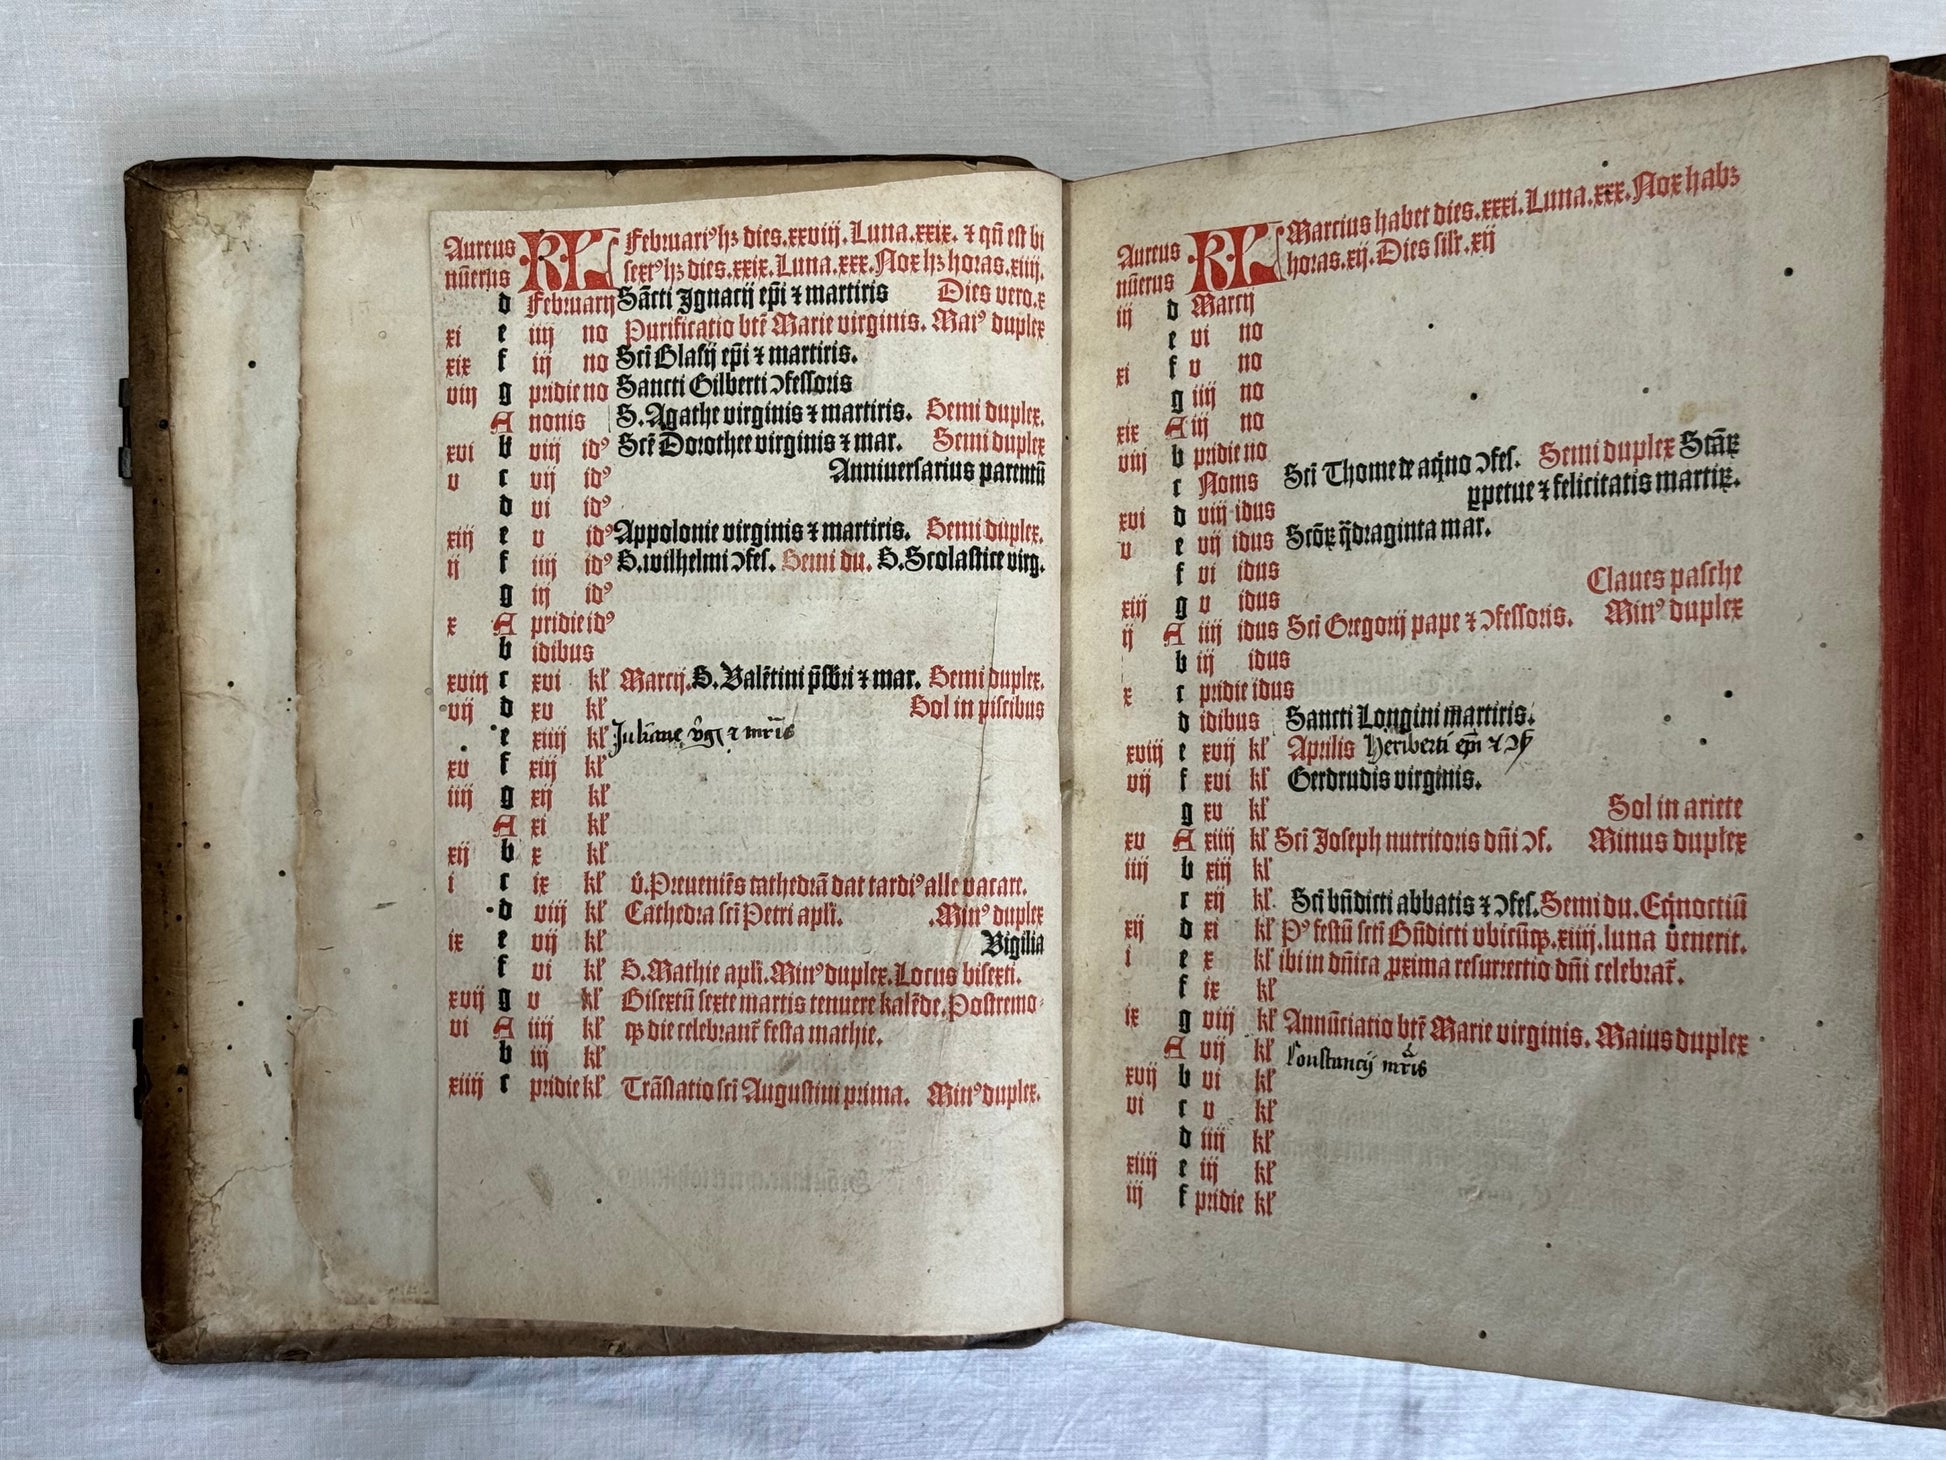 Aureus nũerus KL Februariꝰ hꝫ dies.xxviij.Luna.xxix. ⁊ qñ est bi
sextꝰ hꝫ dies.xxix.Luna.xxx.Nox hꝫ horas.xiiij.
d Februarij Sācti Ignacij ep̄i ⁊ martiris Dies vero.x
xi e iiij no Purificatio btē Marie virginis. Maiꝰ duplex
xix f iij no Scī Blasij ep̄i ⁊ martiris.
viij g pridie no Sancti Gilberti ↄfessoris
A nonis S. Agathe virginis ⁊ martiris. Semi duplex.
xvi b viij idꝰ Scē Dorothee virginis ⁊ mar. Semi duplex
v c vij idꝰ Anniuersarius parentū
d vi idꝰ
xiij e v idꝰ Appolonie virginis ⁊ martiris. Semi duplex.
ij f iiij idꝰ S.wilhelmi ↄfes. Semi du. S.Scolastice virg.
g iij idꝰ
x A pridie idꝰ
b idibus
xviij c xvi kl' Marcij.S.Valētini p̄sbri ⁊ mar. Semi duplex.
vij d xv kl' Sol in piscibus
e xiiij kl' Juliane vg ⁊ mris
xv f xiij kl'
iiij g xij kl'
A xi kl'
xij b x kl'
i c ix kl' v̇.Preueniēs cathedrā dat tardiꝰ alle vacare.
d viij kl' Cathedra scī Petri apl̄i. .Minꝰ duplex
ix e vij kl' Vigilia
f vi kl' S.Mathie apl̄i.Minꝰ duplex.Locus bisexti.
xvij g v kl' Bisextū sexte martis tenuere kalēde.Postremo-
vi A iiij kl' qꝫ die celebranr̄ festa mathie.
b iij kl'
xiiij c pridie kl' Trāslatio scī Augustini prima. Minꝰ duplex.
Aureus nũerus KL Marcius habet dies.xxxi.Luna.xxx.Nox habꝫ
horas.xij.Dies sil̄r.xij
iij d Marcij
e vi no
xi f v no
g iiij no
xix A iij no
viij b pridie no
c Nonis Scī Thome de aq̇no ↄfes. Semi duplex Scāꝝ
ꝑpetue ⁊ felicitatis martiꝝ.
xvi d viij idus
v e vij idus Scōꝝ q̄draginta mar.
f vi idus
xiij g v idus Claues pasche
ij A iiij idus Scī Gregorij pape ⁊ ↄfessoris. Minꝰ duplex
b iij idus
x c pridie idus
d idibus Sancti Longini martiris.
xviij e xvij kl' Aprilis Heriberti ep̄i ⁊ ↄf
vij f xvi kl' Gerdrudis virginis.
g xv kl' Sol in ariete
xv A xiiij kl' Scī Joseph nutritoris dn̄i ↄf. Minus duplex
iiij b xiij kl'
c xij kl' Scī bn̄dicti abbatis ⁊ ↄfes.Semi du.Eq̇noctiū
xij d xi kl' Pꝰ festū scti Bn̄dicti vbicūqꝫ.xiiij.luna venerit.
i e x kl' ibi in dn̄ica ꝓxima resurrectio dn̄i celebrat̄.
f ix kl'
ix g viij kl' Annūciatio btē Marie virginis. Maius duplex
A vij kl' Constancij mris
xvij b vi kl'
vi c v kl'
d iiij kl'
xiiij e iij kl'
iij f pridie kl'